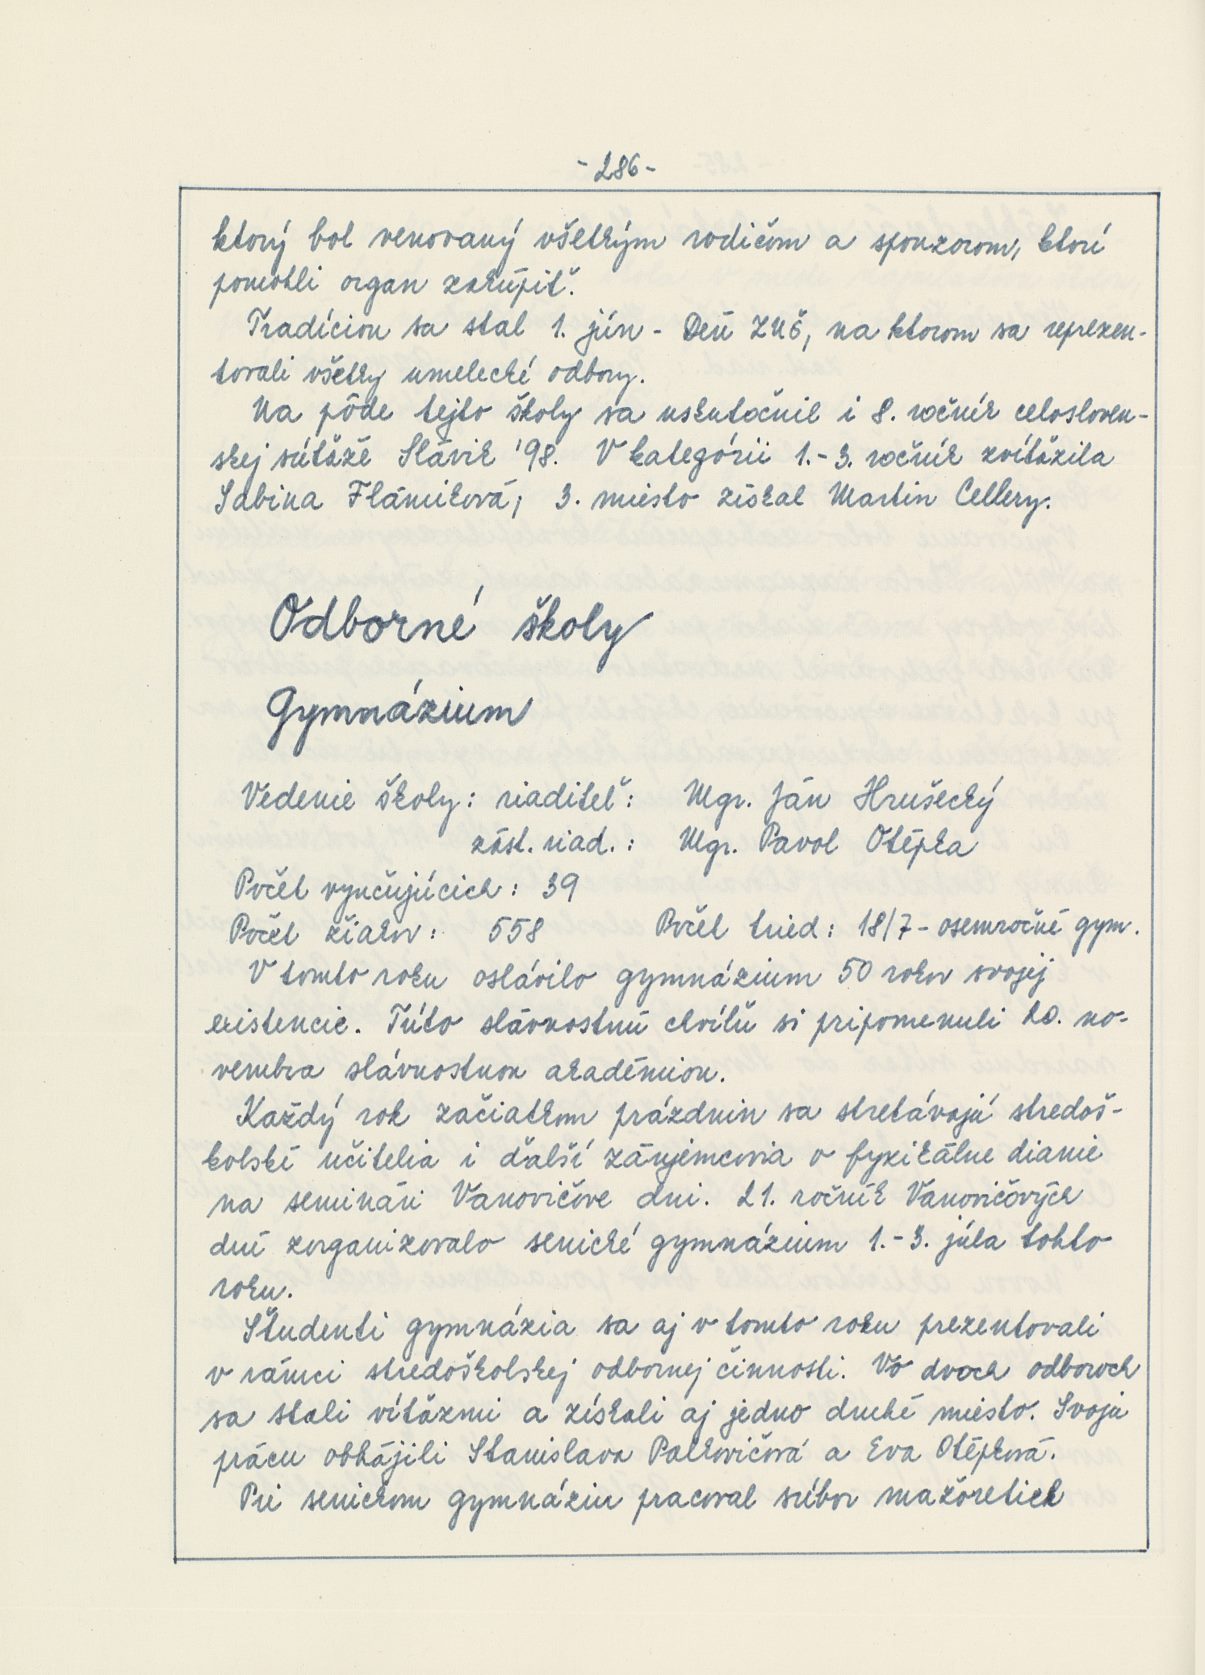 - 286 -
ktorý bol venovaný všetkým rodičom a sponzorom, ktorí
pomohli organ zakúpiť.
Tradíciou sa stal 1. jún - Deň ZUŠ, na ktorom sa reprezen-
tovali všetky umelecké odbory.
Na pôde tejto školy sa uskutočnil i 8. ročník celosloven-
skej súťaže Slávik '98. V kategórii 1.-3. ročník zvíťazila
Sabina Flámiková, 3. miesto získal Martin Cellery.
Odborné školy
Gymnázium
Vedenie školy: riaditeľ: Mgr. Ján Hrušecký
zást. riad.: Mgr. Pavol Otépka
Počet vyučujúcich: 39
Počet žiakov: 558 Počet tried: 18/7 - osemročné gym.
V tomto roku oslávilo gymnázium 50 rokov svojej
existencie. Túto slávnostnú chvíľu si pripomenuli 20. no-
vembra slávnostnou akadémiou.
Každý rok začiatkom prázdnin sa stretávajú stredoš-
kolskí učitelia i ďalší záujemcovia o fyzikálne dianie
na seminári Vanovičove dni. 21. ročník Vanovičových
dní zorganizovalo senické gymnázium 1.-3. júla tohto
roku.
Študenti gymnázia sa aj v tomto roku prezentovali
v rámci stredoškolskej odbornej činnosti. Vo dvoch odboroch
sa stali víťazmi a získali aj jedno druhé miesto. Svoju
prácu obhájili Stanislava Palkovičová a Eva Otépková.
Pri senickom gymnáziu pracoval súbor mažoretiek